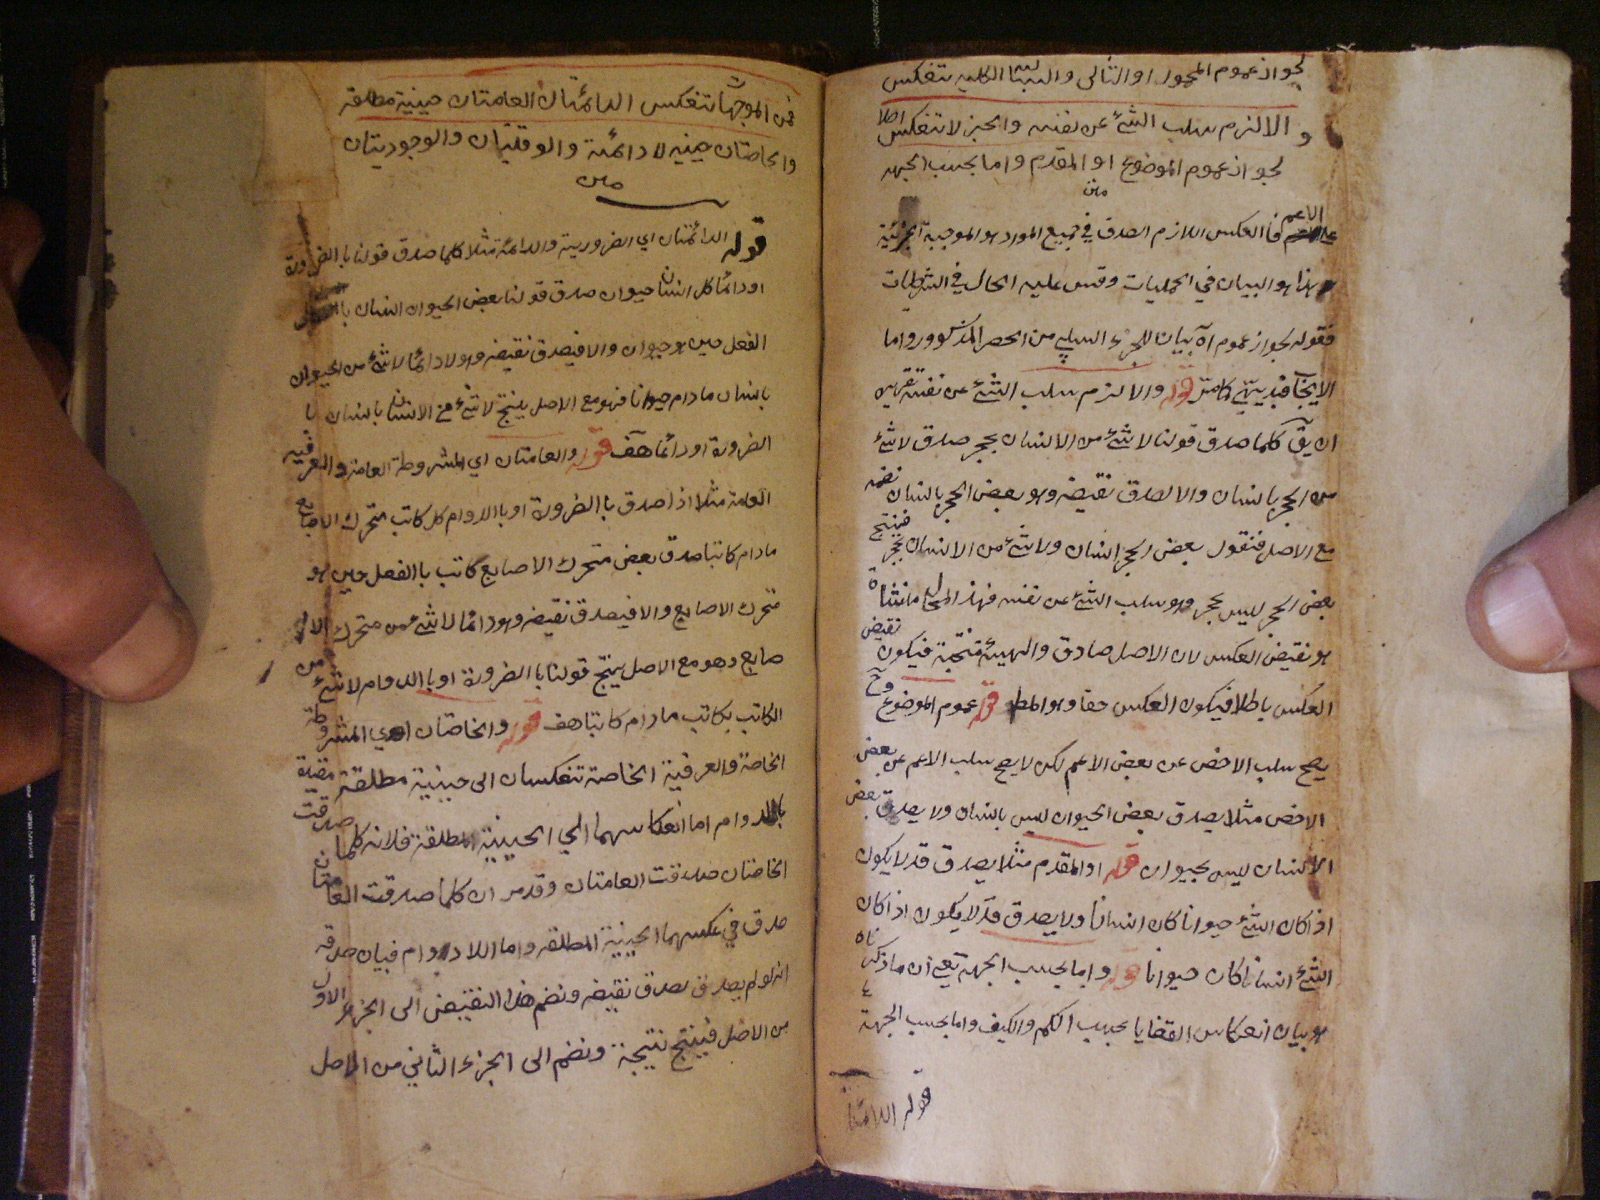 لجواز عموم المحمول او التالى والسالبة الكلية تنعكس
و الا لزم سلب الشئ عن نفسه والجز لا تنعكس اصلا
لجواز عموم الموضوع او المقدم واما بحسب الجهه
متن
الاعم فالعكس اللازم الصدق في جميع المورد هو الموجبة الجزئية
هذا هو البيان في الحمليات وقس عليه الحال في الشرطيات
فقوله لجواز عموم اه بيان للجزء السلبي من الحصر المذكور واما
الايجابي فبديهي كما مر قوله والا لزم سلب الشئ عن نفسه تقريره
ان يق كلما صدق قولنا لا شئ من الانسان بحجر صدق لا شئ
من الحجر بانسان والا لصدق نقيضه وهو بعض الحجر بانسان نضمه
مع الاصل فنقول بعض الحجر انسان ولا شئ من الانسان بحجر فينتج
بعض الحجر ليس بحجر وهو سلب الشئ عن نفسه فهذا المحال منشاه
هو نقيض العكس لان الاصل صادق والهيئة منتجة فيكون نقيض
العكس باطلا فيكون العكس حقا وهو المط قوله عموم الموضوع وح
يصح سلب الاخص عن بعض الاعم لكن لا يصح سلب الاعم عن بعض
الاخص مثلا يصدق بعض الحيوان ليس بانسان ولا يصدق بعض
الانسان ليس بحيوان قوله او المقدم مثلا يصدق قد لا يكون
اذ كان الشئ حيوانا كان انسانا ولا يصدق قد لا يكون اذا كان
الشئ انسانا كان حيوانا قوله واما بحسب الجهة يعني ان ما ذكرناه
هو بيان انعكاس القضايا بحسب الكم والكيف واما بحسب الجهة
قوله الدائمتان
فمن الموجهات تنعكس الدائمتان العامتان حينية مطلقه
والخاصتان حينية لا دائمة والوقتيان والوجوديتان
متن
قوله الدائمتان اي الضرورية والدائمة مثلا كلما صدق قولنا بالضرورة
او دائما كل انسان حيوان صدق قولنا بعض الحيوان انسان
الفعل حين هو حيوان والا فيصدق نقيضه وهو لا دائما لا شئ من الحيوان
بانسان ما دام حيوانا فهو مع الاصل ينتج لا شئ من الانسان بانسان با
لضرورة او دائما هف قوله والعامتان اي المشروطة العامة والعرفيه
العامة مثلا اذا صدق بالضرورة او بالدوام كل كاتب متحرك الاصابع
مادام كاتبا صدق بعض متحرك الاصابع كاتب بالفعل حين هو
متحرك الاصابع والا فيصدق نقيضه وهو دائما لا شئ من متحرك الا
صابع وهو مع الاصل ينتج قولنا بالضرورة او بالدوام لا شئ من
الكاتب بكاتب مادام كاتبا هف قوله والخاصتان اي المشروطة
الخاصة والعرفية الخاصة تنعكسان الى حينية مطلقة مقيدة
باللادوام اما انعكاسهما الي الحينية المطلقة فلانه كلما صدقت
الخاصتان صدقت العامتان وقد مر ان كلما صدقت العامتان
صدق في عكسهما الحينية المطلقه واما اللادوام فبيان صدقه
انه لو لم يصدق لصدق نقيضه ونضم هذا النقيض الى الجزء الاول
من الاصل فينتج نتيجة ونضم الى الجزء الثاني من الاصل